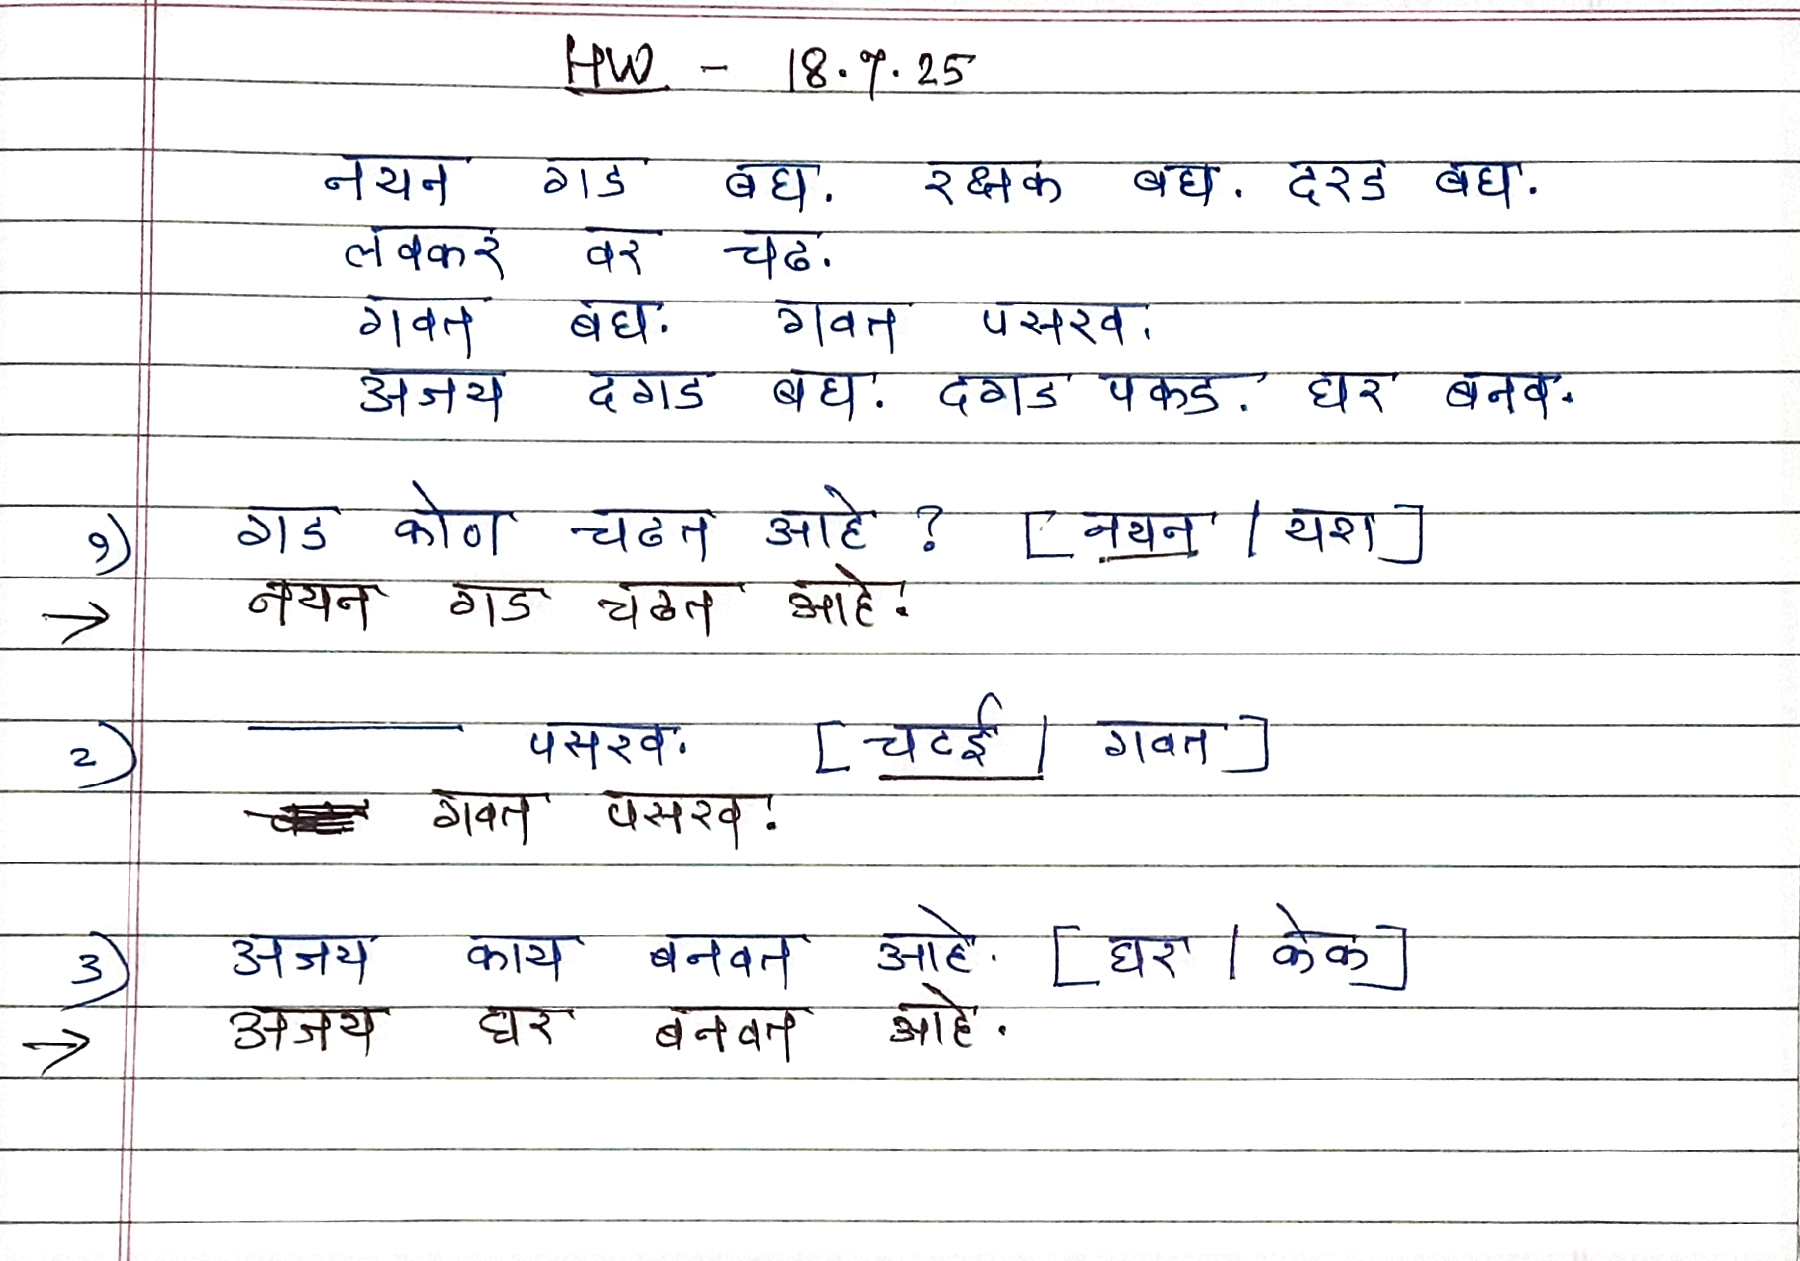 HW - 18.7.25
नयन गड बघ. रक्षक बघ. दरड बघ.
लवकर वर चढ.
गवत बघ. गवत पसरव.
अजय दगड बघ. दगड पकड. घर बनव.
१) गड कोण चढत आहे ? [ नयन / यश ]
→ नयन गड चढत आहे.
२) ______ पसरव. [ चटई / गवत ]
गवत पसरव.
३) अजय काय बनवत आहे. [ घर / केक ]
→ अजय घर बनवत आहे.